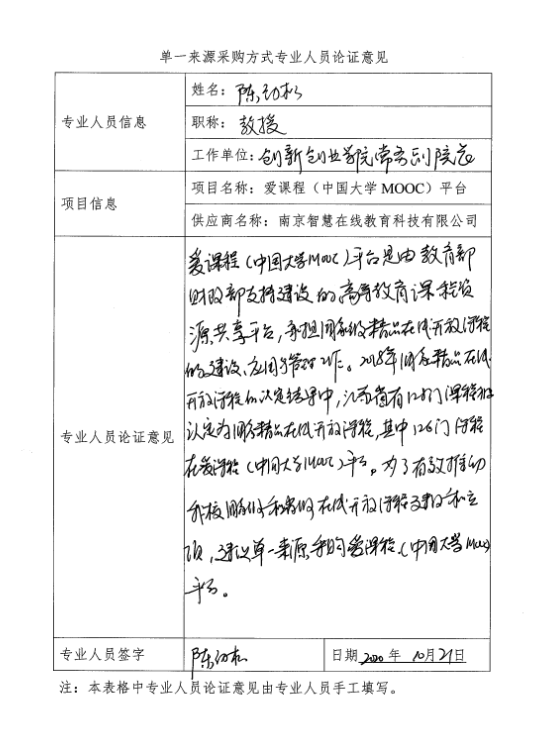 单一来源采购方式专业人员论证意见
专业人员信息
姓名：陈劲松
职称：教授
工作单位：创新创业学院常务副院长
项目信息
项目名称：爱课程（中国大学MOOC）平台
供应商名称：南京智慧在线教育科技有限公司
专业人员论证意见
爱课程（中国大学MOOC）平台是由教育部
财政部支持建设的高等教育课程资
源共享平台，承担国家级精品在线开放课程
的建设、应用与管理工作。2018年国家精品在线
开放课程认定结果中，江苏省有128门课程被
认定为国家精品在线开放课程，其中126门课程
在爱课程（中国大学MOOC）平台。为了有效推动
我校国家级和省级在线开放课程建设和立
项，建议单一来源采购爱课程（中国大学MOOC）
平台。
专业人员签字
陈劲松
日期 2020 年 10月21日
注：本表格中专业人员论证意见由专业人员手工填写。